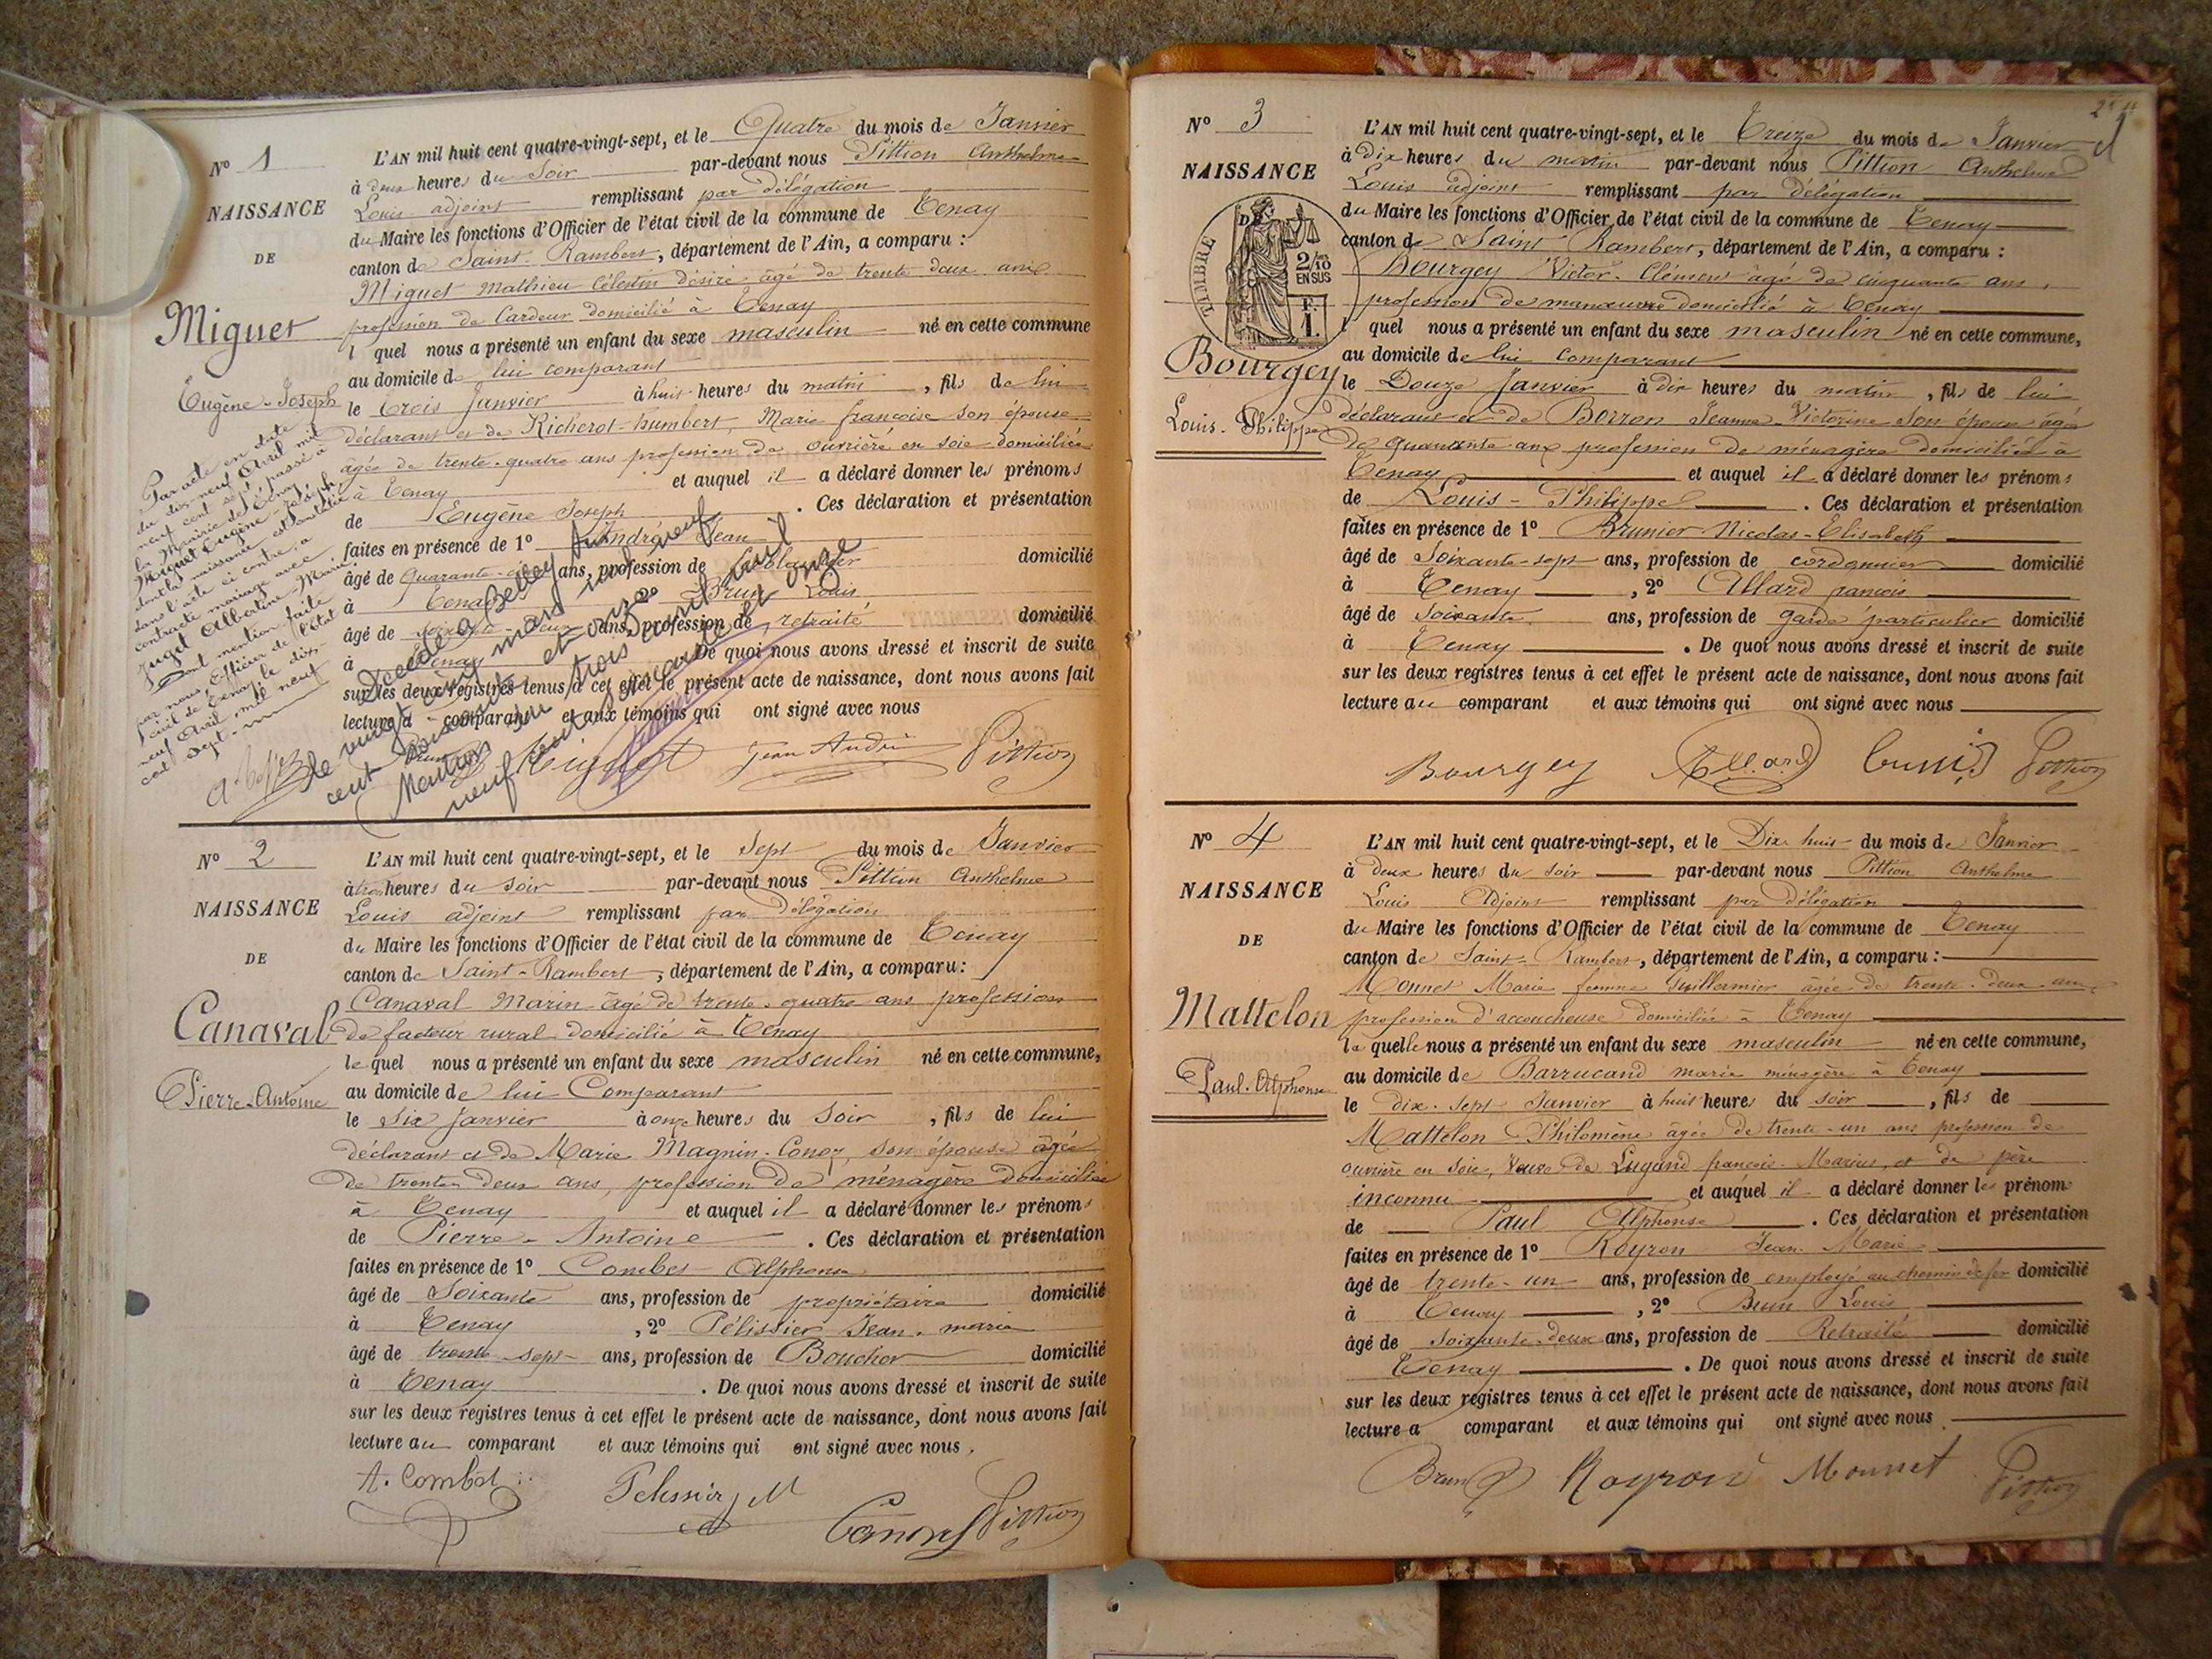 N° 1
NAISSANCE
DE
Miguet
Eugène-Joseph
Par acte en date
du dix-neuf Avril mil
neuf cent sept, passé à
la Mairie de Tenay
Miguet Eugène-Joseph
dont la naissance est constatée
dans l'acte ci contre, a
contracté mariage avec
Juget Albertine Marie.
Dont mention faite
par nous, Officier de l'état
civil de Tenay, le dix-
neuf Avril mil neuf
cent sept.
L'AN mil huit cent quatre-vingt-sept, et le Quatre du mois de Janvier
à deux heures du Soir par-devant nous Pittion Anthelme
Louis adjoint remplissant par délégation
du Maire les fonctions d'Officier de l'état civil de la commune de Tenay
canton de Saint-Rambert, département de l'Ain, a comparu :
Miguet Mathieu Célestin Désiré âgé de trente deux ans
profession de Cardeur domicilié à Tenay
l quel nous a présenté un enfant du sexe masculin né en cette commune
au domicile de lui comparant
le trois Janvier à huit heures du matin, fils de lui
déclarant et de Richerot-humbert, Marie françoise son épouse
âgée de trente-quatre ans profession de ouvrière en soie domiciliée
à Tenay et auquel il a déclaré donner les prénoms
de Eugène Joseph. Ces déclaration et présentation
faites en présence de 1° André Jean
âgé de Quarante ans, profession de domicilié
à Tenay, 2° Brun Louis
âgé de soixante-deux ans, profession de retraité domicilié
à Tenay. De quoi nous avons dressé et inscrit de suite
sur les deux registres tenus à cet effet le présent acte de naissance, dont nous avons fait
lecture a comparant et aux témoins qui ont signé avec nous
Décédé à Belley Ain
le vingt cinq mars mil neuf
cent soixante et onze
Mention du trois avril mil
neuf cent soixante et onze
Brun Miguet Jean André Pittion
N° 2
NAISSANCE
DE
Canaval
Pierre-Antoine
L'AN mil huit cent quatre-vingt-sept, et le Sept du mois de Janvier
à trois heures du soir par-devant nous Pittion Anthelme
Louis adjoint remplissant par délégation
du Maire les fonctions d'Officier de l'état civil de la commune de Tenay
canton de Saint-Rambert, département de l'Ain, a comparu :
Canaval Marin âgé de trente-quatre ans profession
de facteur rural domicilié à Tenay
le quel nous a présenté un enfant du sexe masculin né en cette commune,
au domicile de lui Comparant
le Six Janvier à onze heures du Soir, fils de lui
déclarant et de Marie Magnin-Conoz, son épouse âgée
de trente deux ans, profession de ménagère domiciliée
à Tenay et auquel il a déclaré donner les prénoms
de Pierre-Antoine. Ces déclaration et présentation
faites en présence de 1° Combet Alphonse
âgé de Soixante ans, profession de propriétaire domicilié
à Tenay, 2° Pélissier Jean-marie
âgé de trente-sept ans, profession de Boucher domicilié
à Tenay. De quoi nous avons dressé et inscrit de suite
sur les deux registres tenus à cet effet le présent acte de naissance, dont nous avons fait
lecture au comparant et aux témoins qui ont signé avec nous.
A. Combet Pelissier M
Canaval Pittion
N° 3
NAISSANCE
TIMBRE
2/10
EN SUS
F.
1.
Bourgey
Louis-Philippe
L'AN mil huit cent quatre-vingt-sept, et le Treize du mois de Janvier
à dix heures du matin par-devant nous Pittion Anthelme
Louis adjoint remplissant par délégation
du Maire les fonctions d'Officier de l'état civil de la commune de Tenay
canton de Saint Rambert, département de l'Ain, a comparu :
Bourgey Victor-Clément âgé de cinquante ans,
profession de manœuvre domicilié à Tenay
l quel nous a présenté un enfant du sexe masculin né en cette commune,
au domicile de lui comparant
le Douze Janvier à dix heures du matin, fils de lui
déclarant et de Borron Jeanne-Victorine son épouse âgée
de quarante ans profession de ménagère domiciliée à
Tenay et auquel il a déclaré donner les prénoms
de Louis-Philippe. Ces déclaration et présentation
faites en présence de 1° Brunier Nicolas-Elisabeth
âgé de Soixante-sept ans, profession de cordonnier domicilié
à Tenay, 2° Allard françois
âgé de Soixante ans, profession de garde particulier domicilié
à Tenay. De quoi nous avons dressé et inscrit de suite
sur les deux registres tenus à cet effet le présent acte de naissance, dont nous avons fait
lecture au comparant et aux témoins qui ont signé avec nous
Bourgey Allard Pittion
N° 4
NAISSANCE
DE
Mattelon
Paul-Alphonse
L'AN mil huit cent quatre-vingt-sept, et le Dix huit du mois de Janvier
à deux heures du soir par-devant nous Pittion Anthelme
Louis Adjoint remplissant par délégation
du Maire les fonctions d'Officier de l'état civil de la commune de Tenay
canton de Saint-Rambert, département de l'Ain, a comparu :
Monnet Marie femme Guillermier âgée de trente-deux ans,
profession d'accoucheuse domiciliée à Tenay
la quelle nous a présenté un enfant du sexe masculin né en cette commune,
au domicile de Barrucand marie ménagère à Tenay
le dix-sept Janvier à huit heures du soir, fils de
Mattelon Philomène âgée de trente-un ans profession de
ouvrière en soie, Veuve de Lugand françois-Marius, et de père
inconnu et auquel il a déclaré donner les prénom
de Paul Alphonse. Ces déclaration et présentation
faites en présence de 1° Royron Jean-Marie
âgé de trente-un ans, profession de employé au chemin de fer domicilié
à Tenay, 2° Brun Louis
âgé de Soixante-deux ans, profession de Retraité domicilié
Tenay. De quoi nous avons dressé et inscrit de suite
sur les deux registres tenus à cet effet le présent acte de naissance, dont nous avons fait
lecture a comparant et aux témoins qui ont signé avec nous
Brun Royron Monnet Pittion